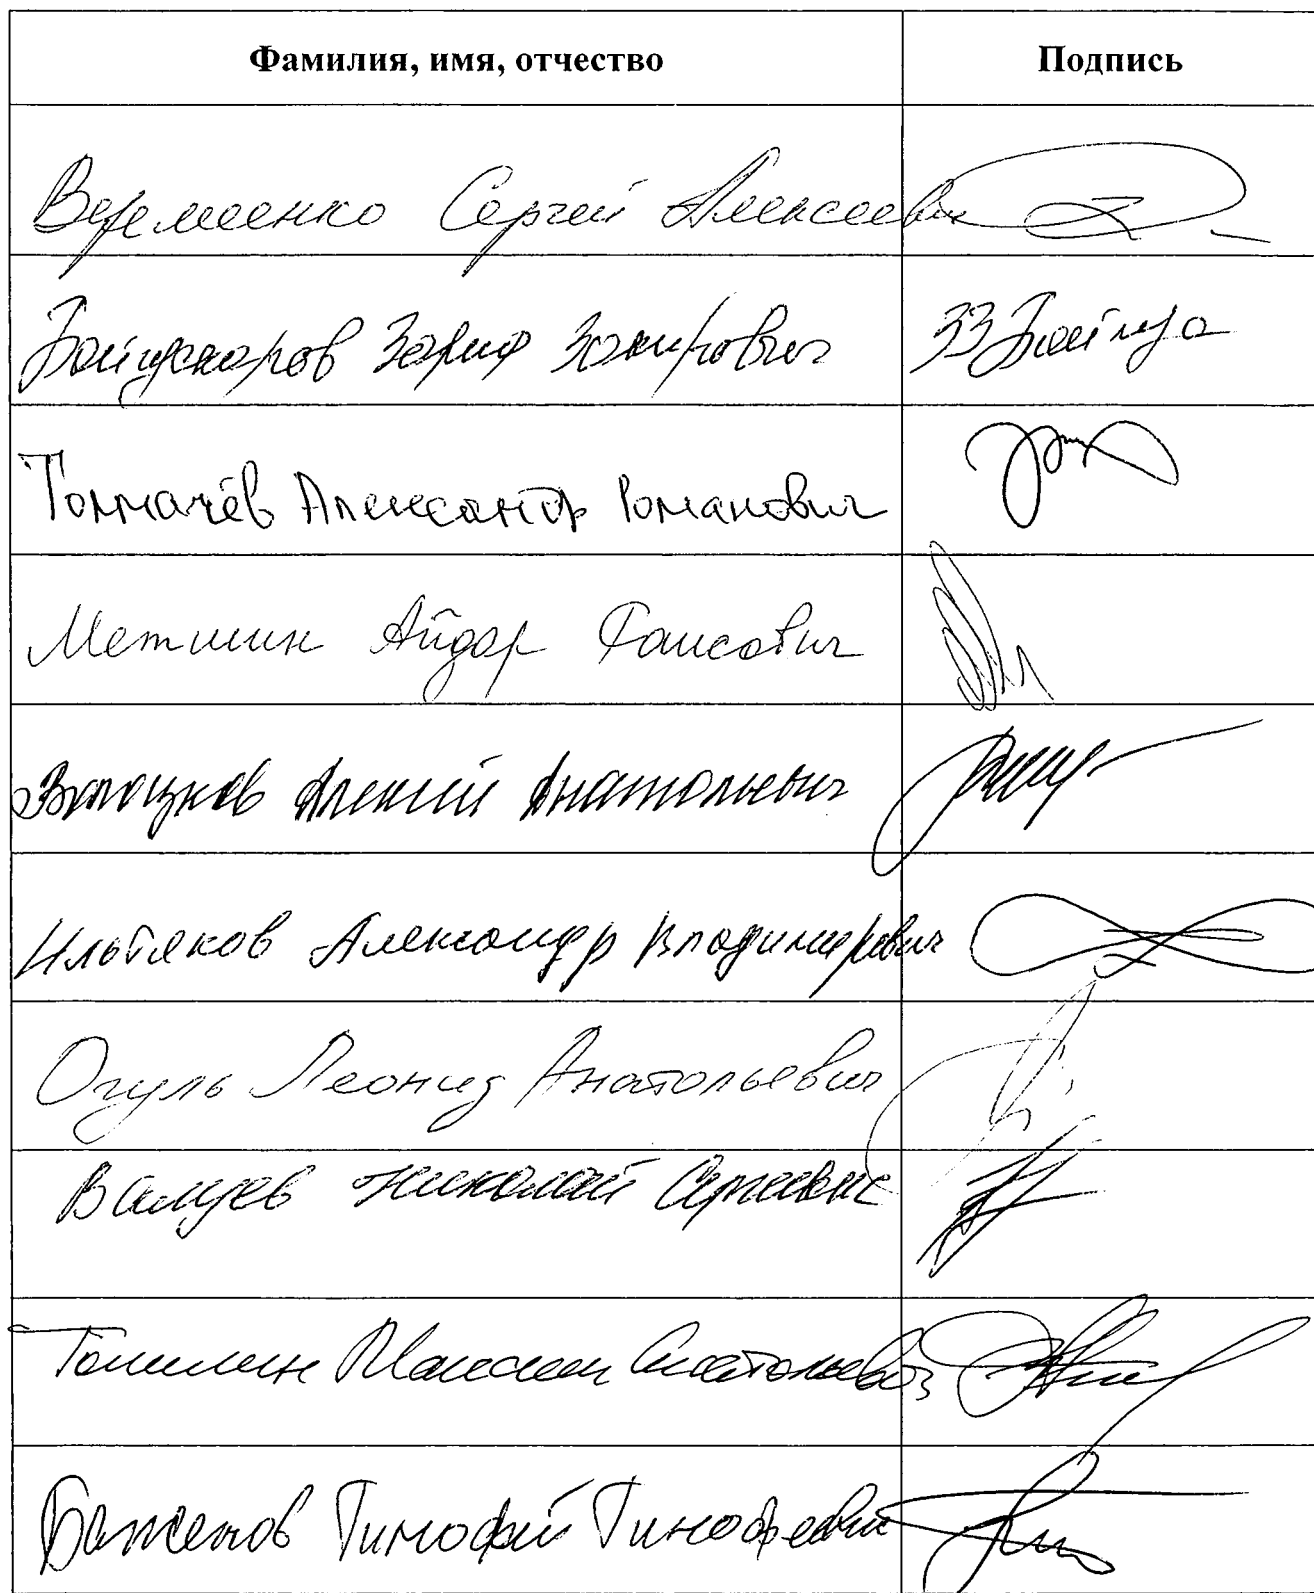 Фамилия, имя, отчество Подпись
Веремеенко Сергей Алексеевич
Байгускаров Зариф Закирович ЗЗБайгуа
Толмачёв Александр Романович
Метшин Айдар Раисович
Волоцков Алексей Анатольевич
Ильтяков Александр Владимирович
Огуль Леонид Анатольевич
Валуев Николай Сергеевич
Топилин Максим Анатольевич
Баженов Тимофей Тимофеевич